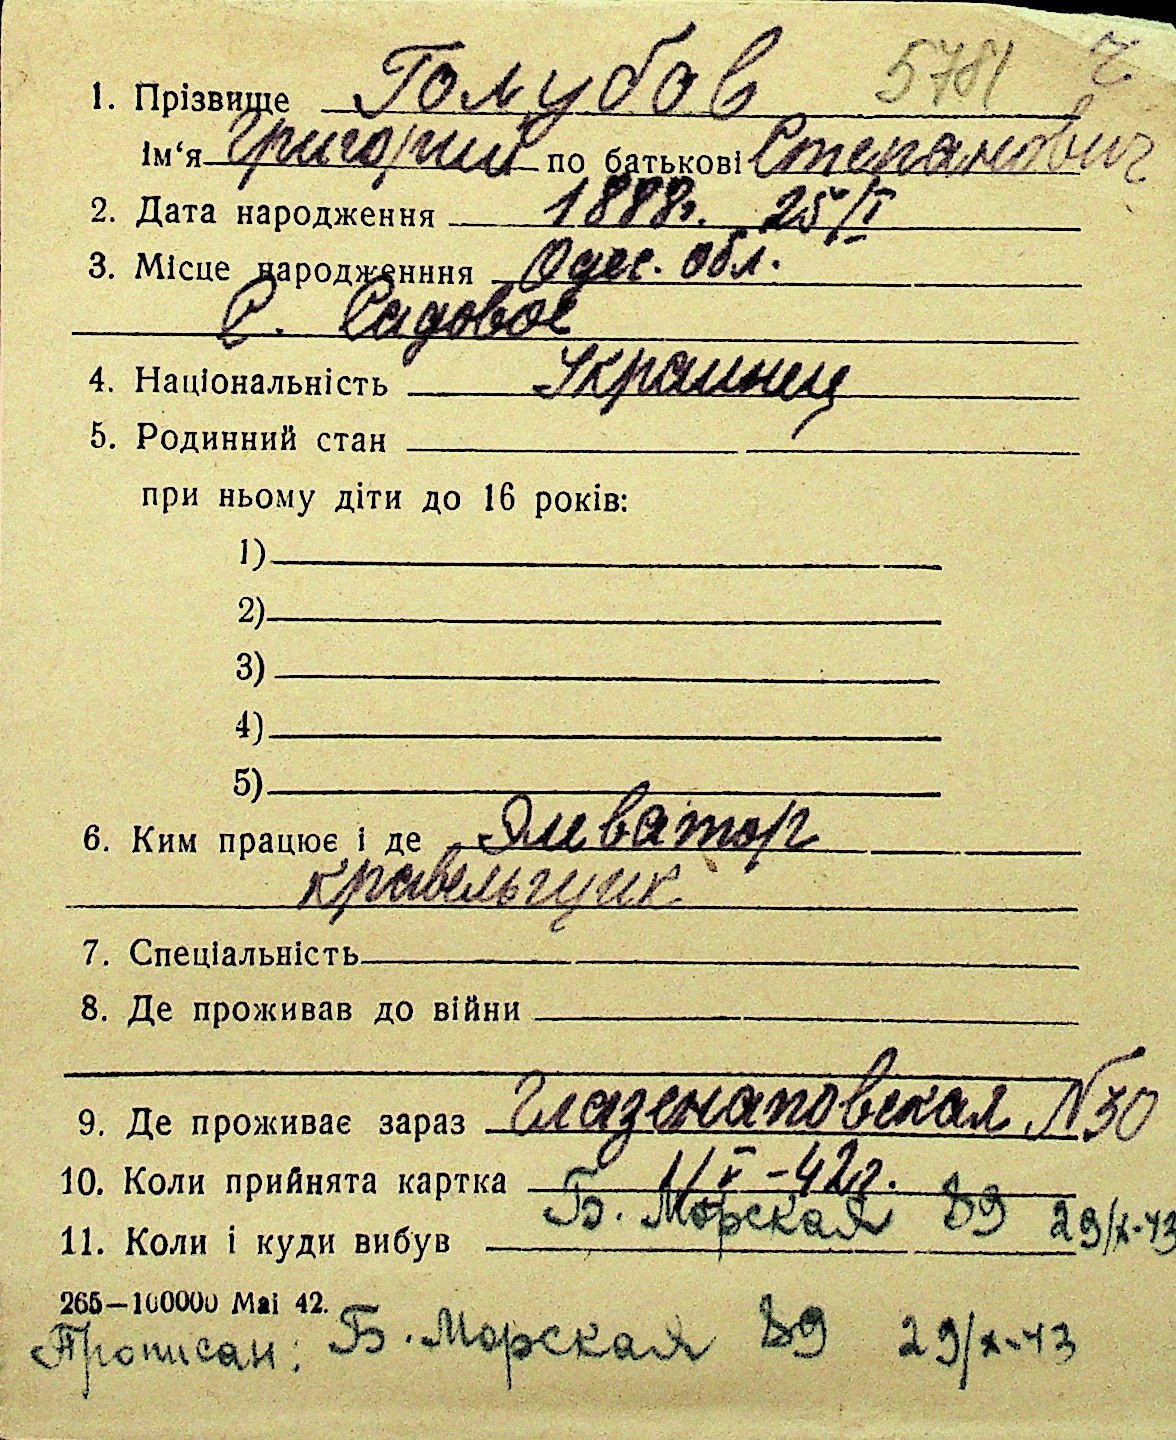 5781 ч
1. Прізвище Голубов
Ім‘я Григорий по батькові Степанович
2. Дата народження 1888г. 25/I
3. Місце народженння Одес. обл.
С. Садовое
4. Національність Украинец
5. Родинний стан
при ньому діти до 16 років:
1)
2)
3)
4)
5)
6. Ким працює і де Элеватор
кравельщик
7. Спеціальність
8. Де проживав до війни
9. Де проживає зараз Глазенаповская №30
10. Коли прийнята картка 1/V-42г.
Б. Морская 89 29/X-43
11. Коли і куди вибув
265—100000 Маі 42.
Прописан: Б. Морская 89 29/X-43